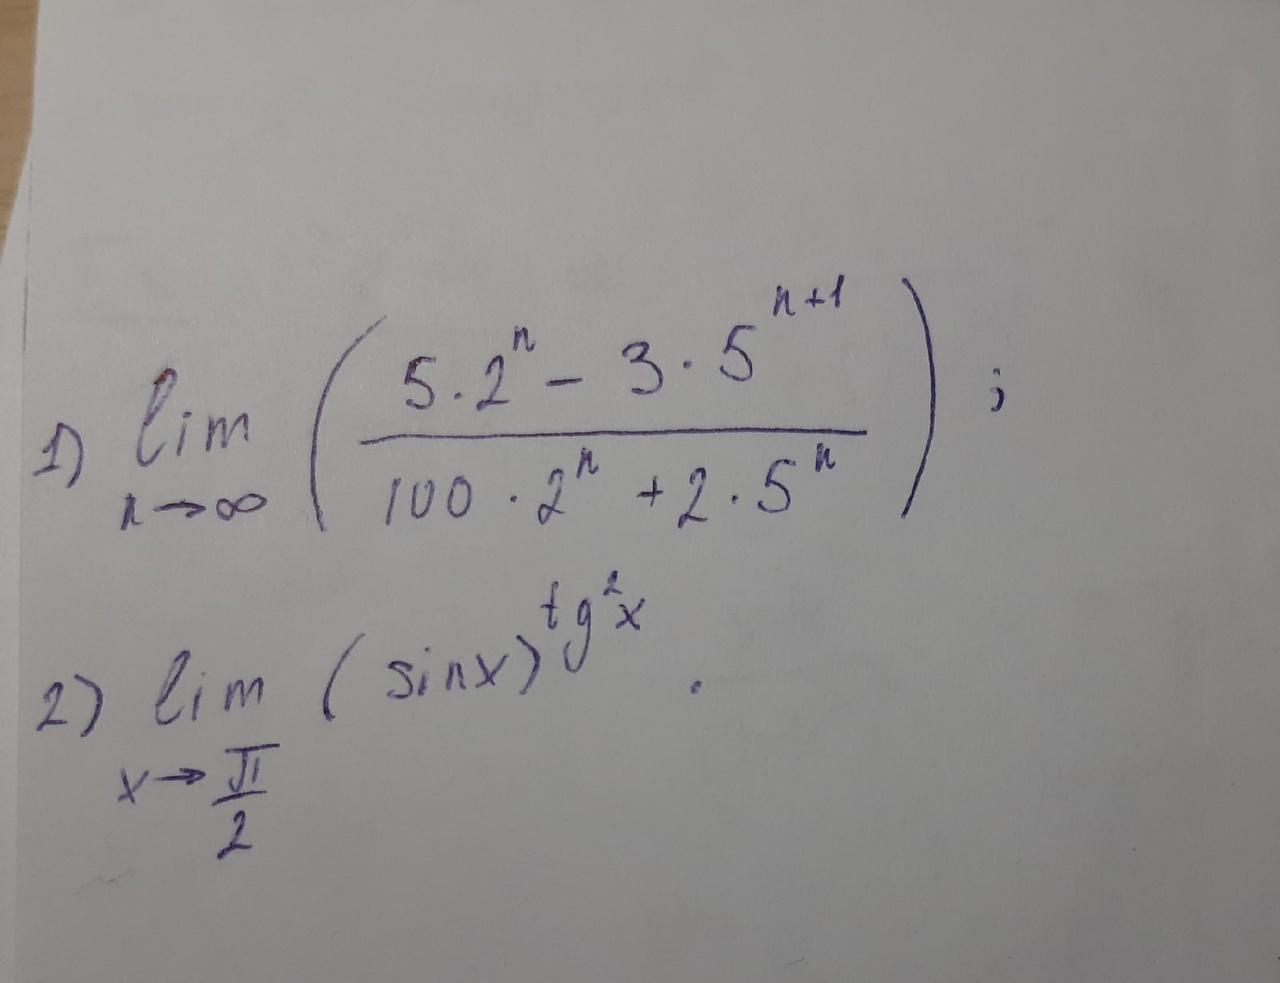 1) lim n→∞ ( (5·2ⁿ − 3·5ⁿ⁺¹) / (100·2ⁿ + 2·5ⁿ) ) ;
2) lim x→π/2 (sinx)^tg²x .